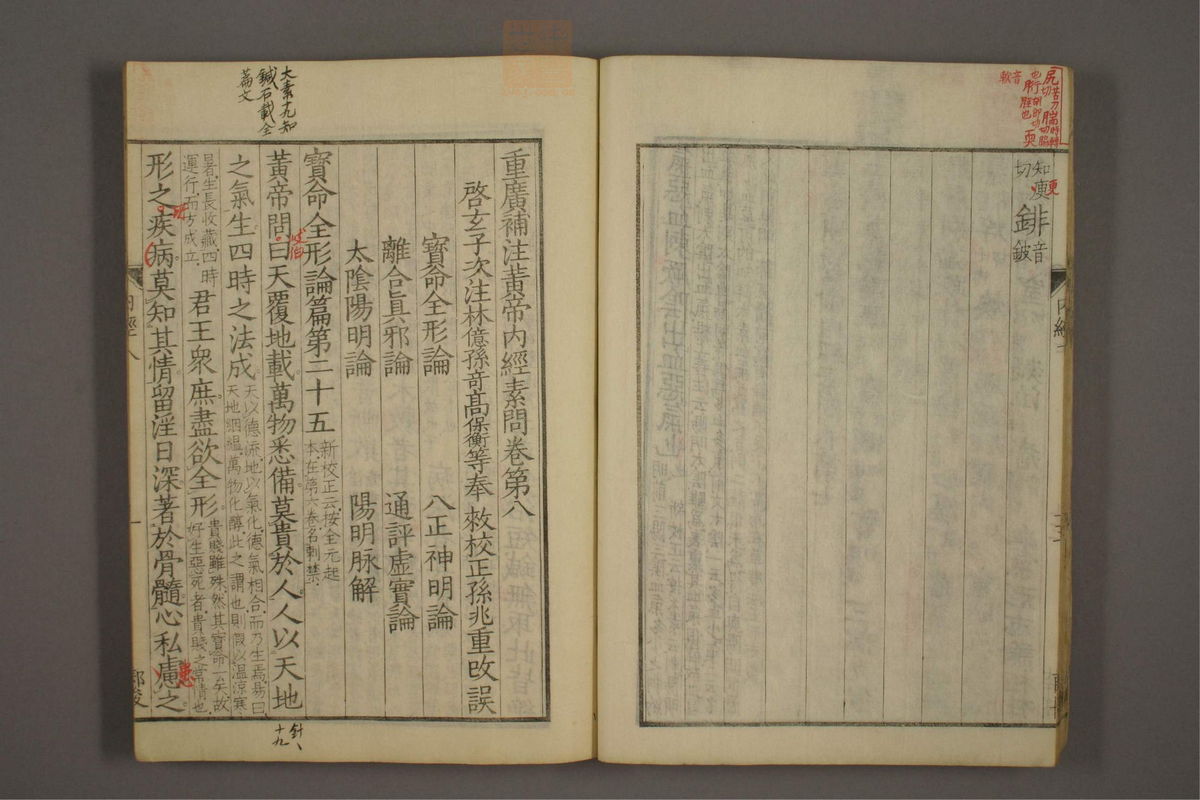 尻苦刀
切
腨時轉
切腨
也
䯒行胡郎切
脛也
耎
音
軟
知庾
切
更
鈹音
鈹
内經
重廣補注黃帝内經素問卷第八
啓玄子次注林億孫奇高保衡等奉敕校正孫兆重改誤
寶命全形論
八正神明論
離合眞邪論
通評虛實論
太陰陽明論
陽明脉解
大素十九知
鍼石載全
篇文
寶命全形論篇第二十五
新校正云按全元起
本在第六卷名刺禁
黃帝問曰天覆地載萬物悉備莫貴於人人以天地
之氣生四時之法成
天以德流地以氣化德氣相合而乃生焉易曰
天地絪縕萬物化醇此之謂也則假以温涼寒
暑生長收藏四時
運行而方成立
君王衆庶盡欲全形
貴賤雖殊然其寶命一矣故
好生惡死者貴賤之常情也
形之疾病莫知其情留淫日深著於骨髓心私慮之
所
患
針
十九
内經八
一